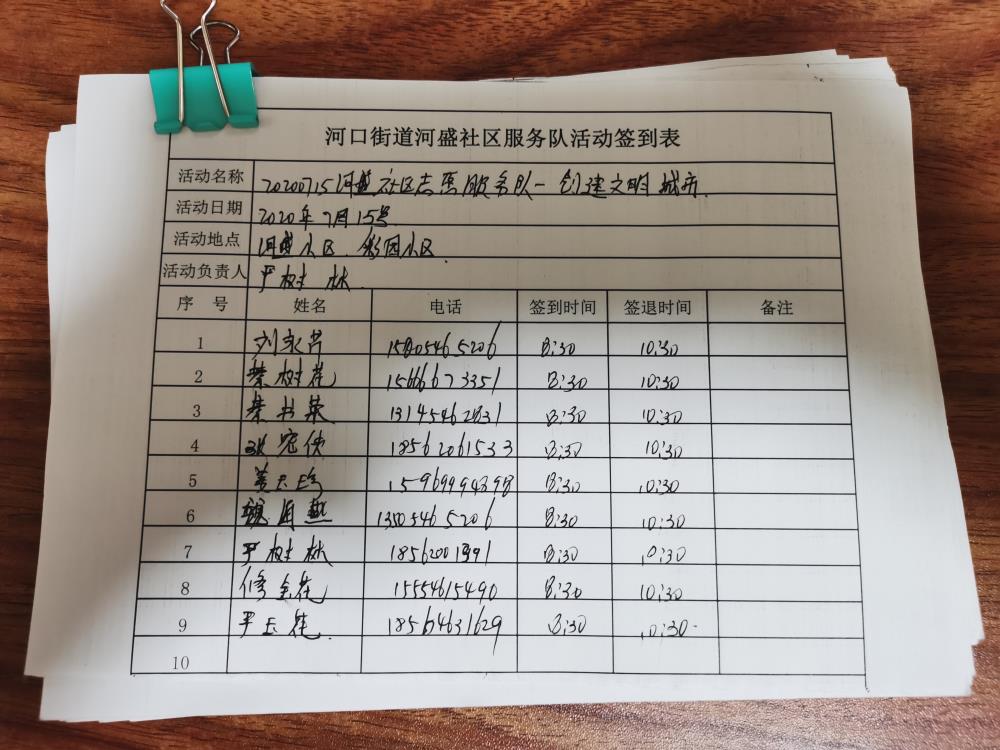 河口街道河盛社区服务队活动签到表
活动名称 20200715河盛社区志愿服务队-创建文明城市
活动日期 2020年7月15号
活动地点 河盛小区、彩园小区
活动负责人 严树林
序号 姓名 电话 签到时间 签退时间 备注
1 刘永芹 15805465206 8:30 10:30
2 綦树花 15666673351 8:30 10:30
3 綦书英 13145462831 8:30 10:30
4 宠侠 18562061533 8:30 10:30
5 姜玉珍 15969994398 8:30 10:30
6 魏月燕 13505465206 8:30 10:30
7 严树林 18562001391 8:30 10:30
8 修金花 15554615490 8:30 10:30
9 严玉花 18564631629 8:30 10:30
10